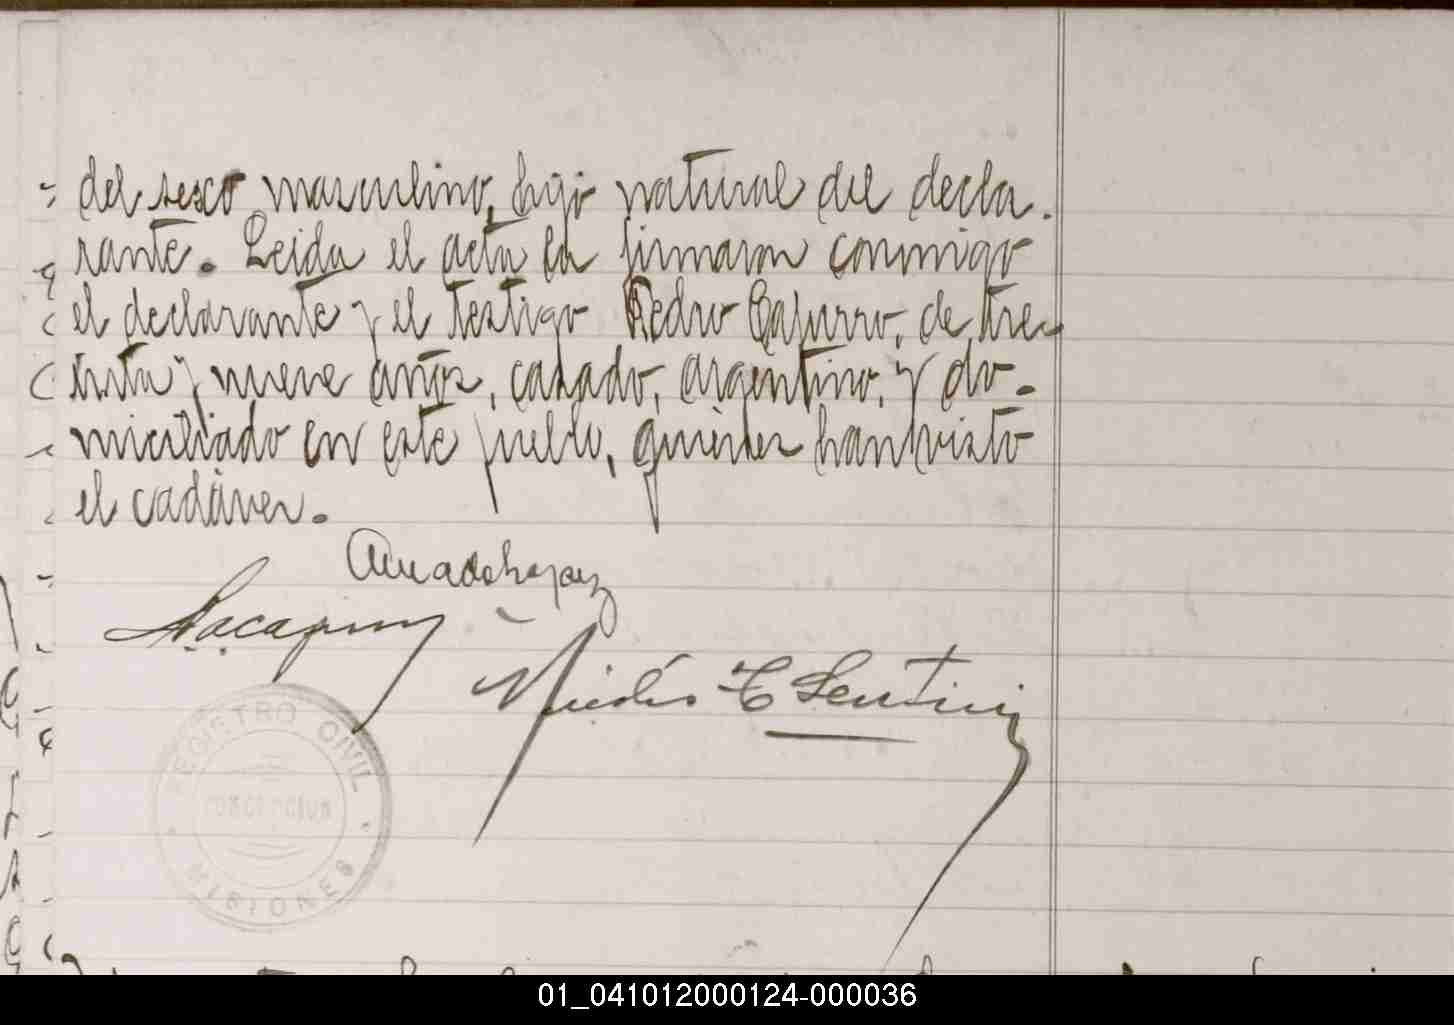 del sesco masculino, hijo natural del decla-
rante. Leida el acta la firmaron conmigo
el declarante y el testigo Pedro Capurro, de trei-
inta y nueve años, casado, argentino, y do-
miciliado en este pueblo, quienes han visto
el cadáver.
REGISTRO CIVIL
MISIONES
01_041012000124-000036